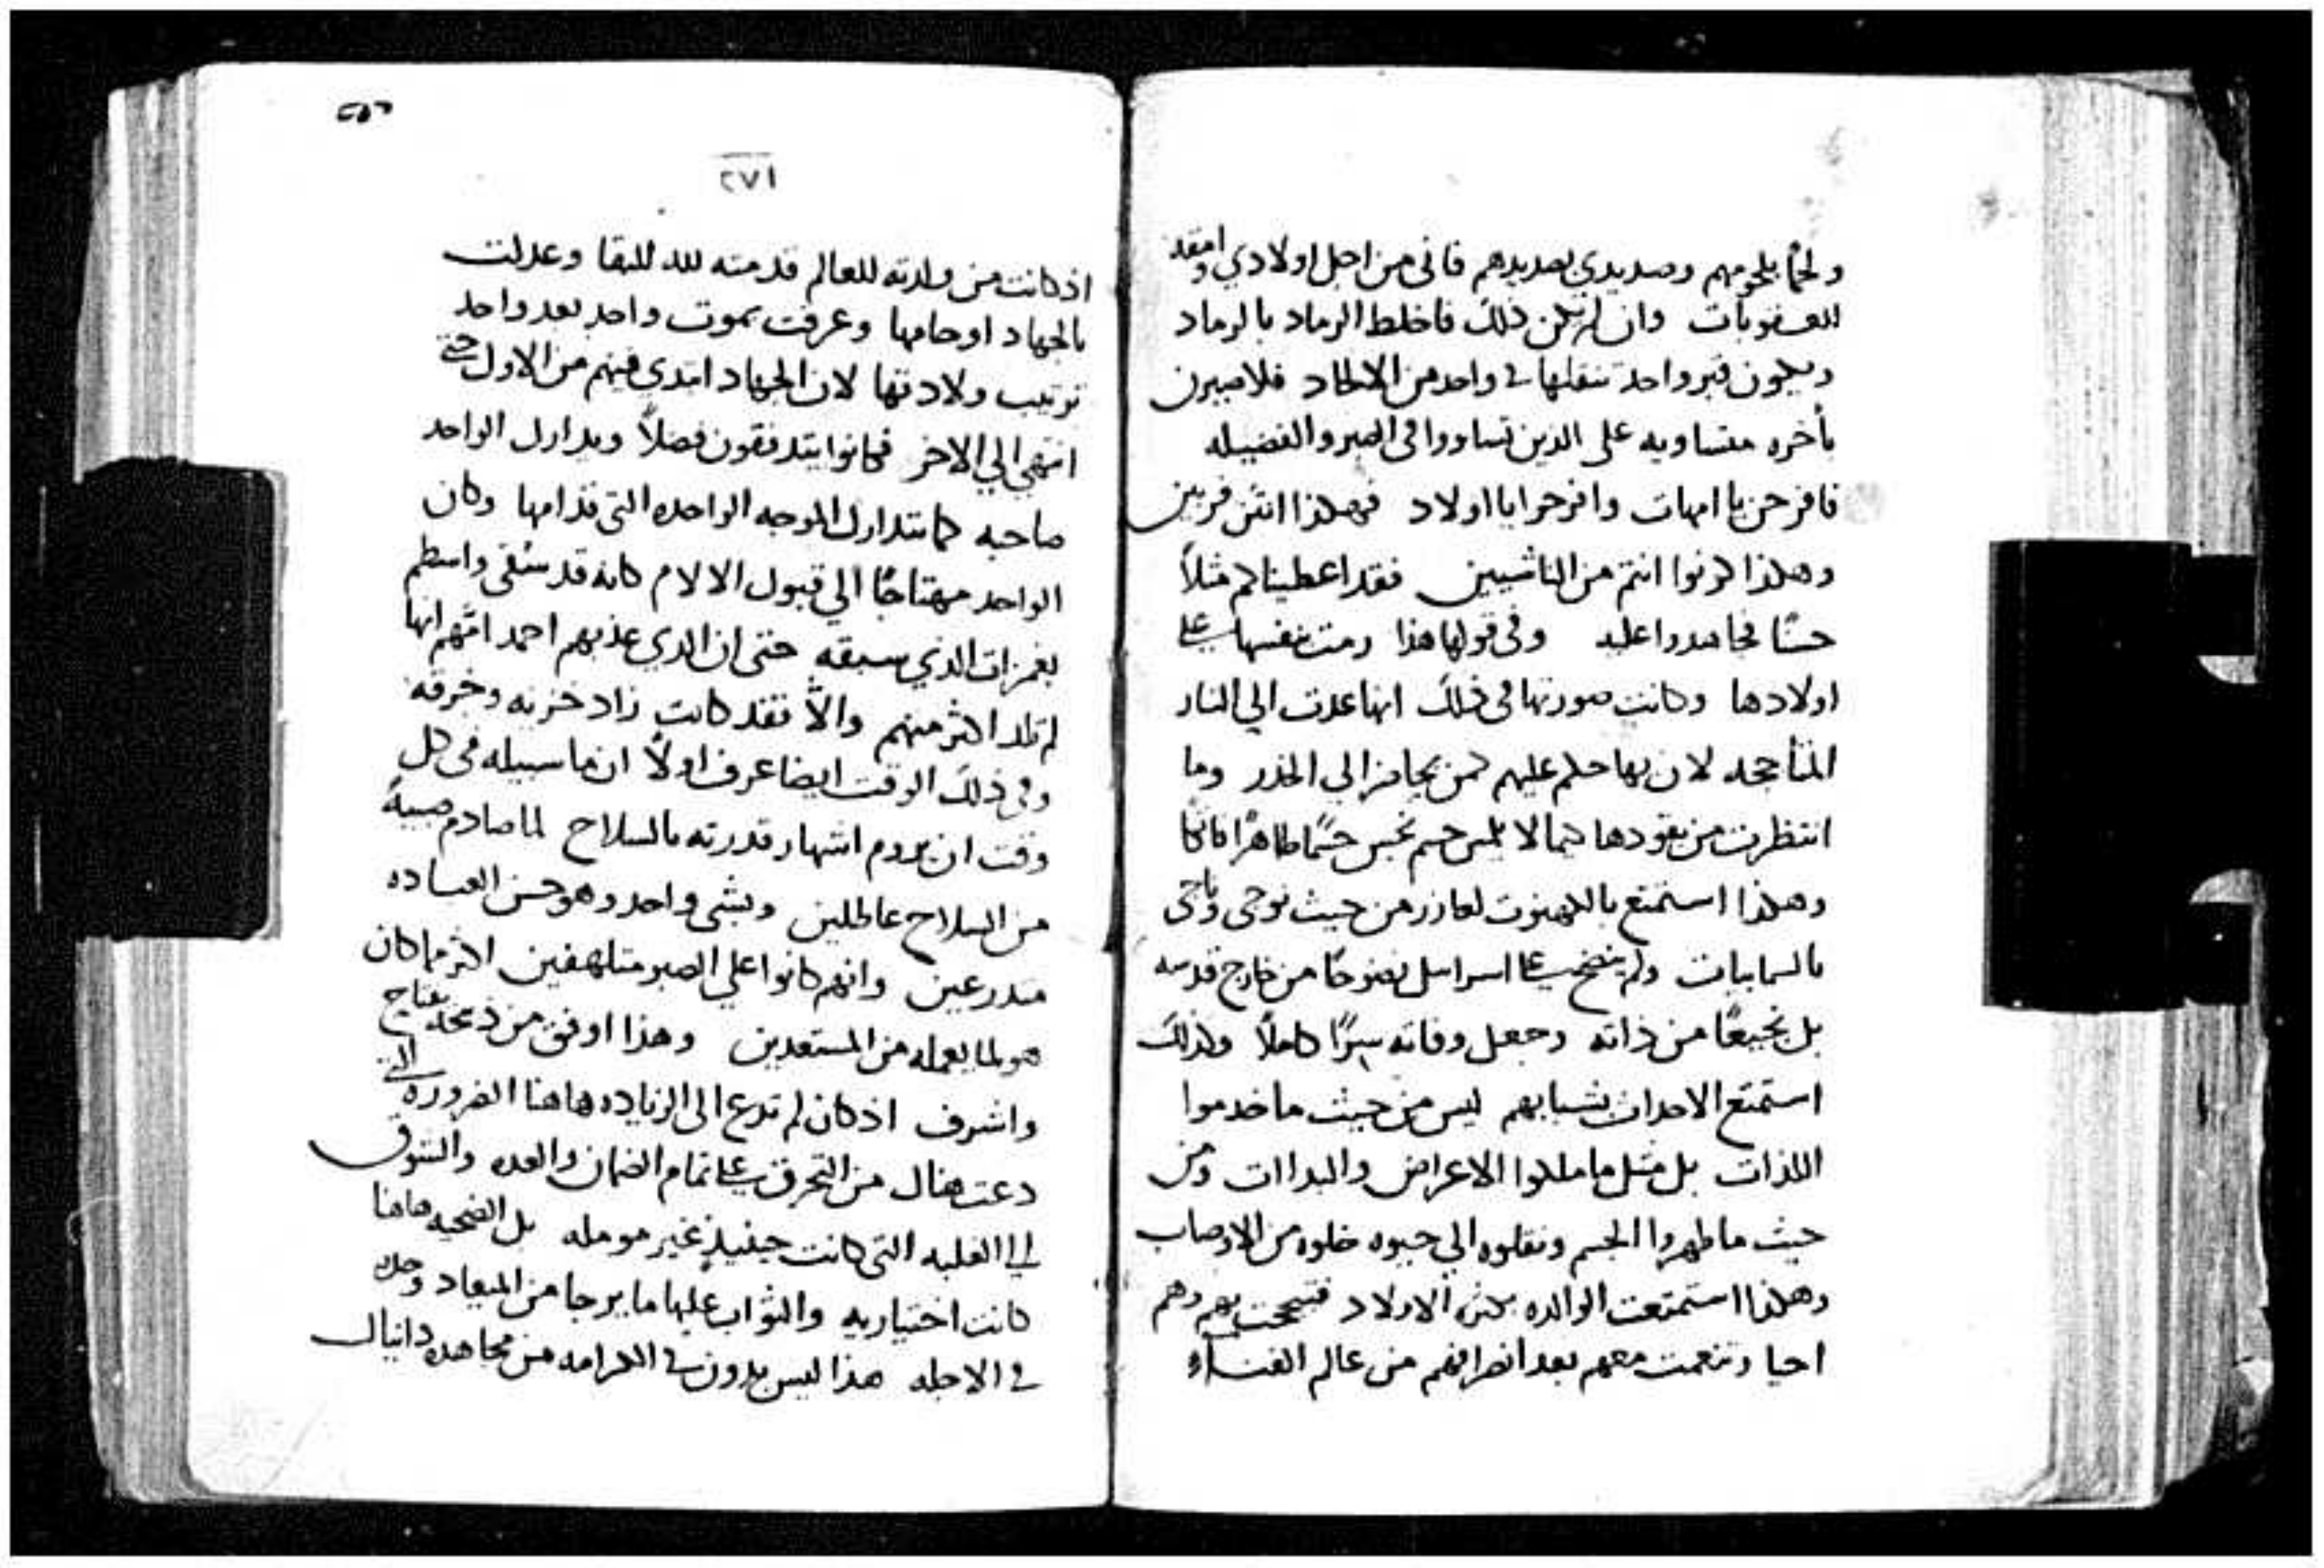 ولحمًا بلحومهم وصديدي بصديدهم فاني من اجل اولادي وامقد
العقوبات وان لم يكن ذلك فاخلط الرماد بالرماد
ويكون قبر واحد في واحد من الالحاد فلا
بأخره متساويه على الذين تساووا في الصبر والفضيله
فافرحن يا امهات وافرحوا يا اولاد فهكذا
وهكذا كونوا انتم من الناشيين فقد اعطيناكم مثلاً
حسنًا فجاهدوا عليه وفي قولها هذا رمت نفسها على
اولادها وكانت صورتها في ذلك انها عدت الي النار
المتأججه لان بها حكم عليهم كمن يجاز الي الخدر وما
انتظرت من يقودها كيما لا يلمس جسم نجس جسمًا طاهرًا
وهكذا استمتع بالكهنوت لعازر من حيث نوجي وناجى
بالسماييات ولم ينضح على اسراييل نضوحًا من خارج قدسه
بل نجيعًا من ذاته وجعل وفاته سرًا كاملاً ولذلك
استمتع الاحداث بشبابهم ليس من حيث ما خدموا
اللذات بل مثل ما ملكوا الاعراض والبداات ومن
حيث ما طهروا الجسم ونقلوه الي حيوه خلوه من الاوصاب
وهكذا استمتعت الوالده بكثرة الاولاد فتبجحت بهم وهم
احيا وتنعمت معهم بعد انصرافهم من عالم الفناء
٢٧١
اذ كانت من ولدته للعالم قدمته لله للبقا وعدلت
بالجهاد اوحامها وعرفت بموت واحد بعد واحد
ترتيب ولادتها لان الجهاد ابتدى فيهم من الاول حتى
انتهى الي الاخر فكانوا يتدفقون فضلاً ويدارك الواحد
صاحبه كما تتدارك الموجه الواحده التي قدامها وكان
الواحد مهتاجًا الي قبول الالام كانه قد سقي
بغمزات الذي سبقه حتى ان الذي عذبهم احمد امهم انها
لم تلد اكثر منهم والاّ فقد كانت زاد خزيه وخرقه
وفي ذلك الوقت ايضا عرف اولاً ان ما سبيله في كل
وقت ان يروم اشهار قدرته بالسلاح لما صادم صبيةً
من السلاح عاطلين وبشي واحد وهو حسن العباده
متدرعين وانهم كانوا علي الصبر متلهفين اكثر مما كان
هو لما يعمله من المستعدين وهذا اوفق من ذبيحة يفتاح
واشرف اذ كان لم تدع الى الزياده هاهنا الضروره التي
دعت هناك من التحرق على تمام الضمان والعده والتتوق
الي الغلبه التي كانت حينيذٍ غير مومله بل الضحيه هاهنا
كانت اختياريه والثواب عليها ما يرجا من الميعاد وحده
في الاجله هذا ليس بدون في الكرامه من مجاهدة دانيال